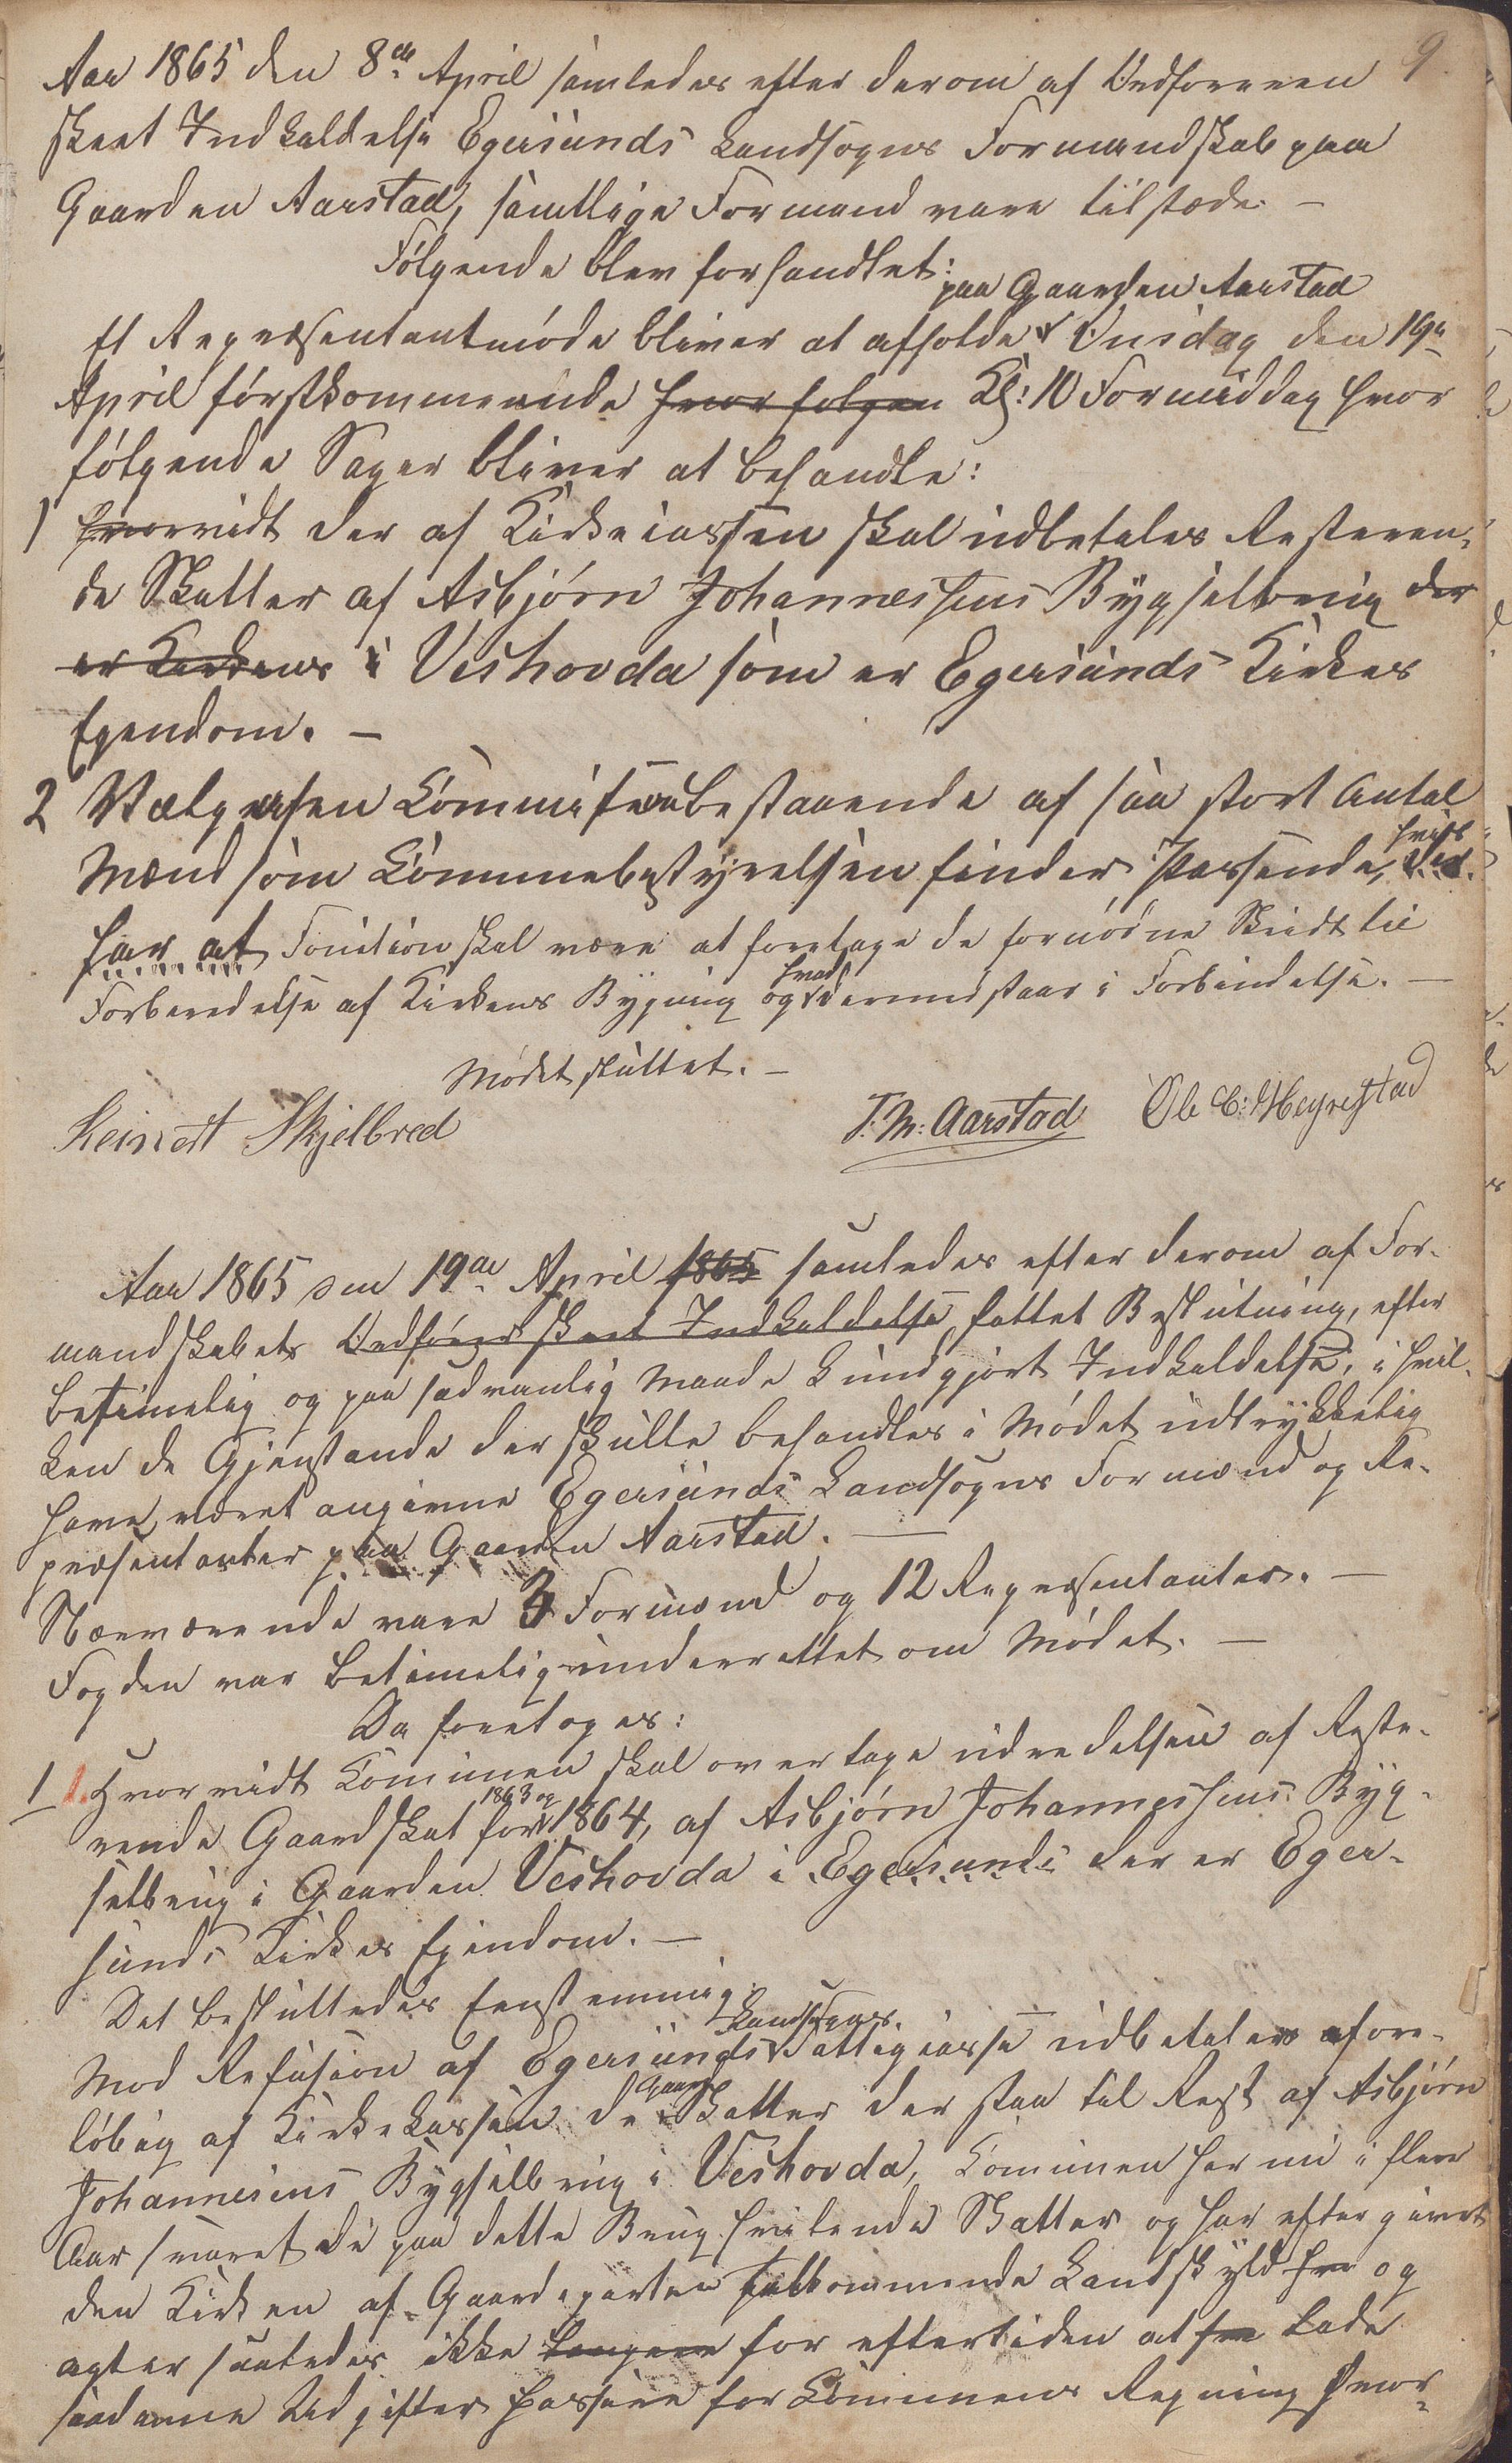 9.
Aar 1865 den 8de April samledes efter derom af Ordføreren
skeet Indkaldelse Egersunds Landsogns Formandskab paa
Gaarden Aarstad, samtlige Formænd vare tilstæde. –
Følgende blev forhandlet:
paa Gaarden Aarstad
Et Repræsentantmøde bliver at afholde Onsdag den 19de
April førstkommende hvor følgen Kl: 10 Formiddag hvor
følgende Sager bliver at behandle:
1 hvorvidt der af Kirkecassen skal udbetales Resteren-
de Skatter af Asbjørn Johannessens Bygselbrug der
er Kirkens i Veshovda som er Egersunds Kirkes
Egendom. –
2 Vælgelsen Commission bestaaende af saa stort Antal
hvis
Mænd som Communebestyrelsen finder passende, ded
har at Fonction skal være at foretage de fornødne Skridt til
hvad
Forberedelse af Kirkens Bygning og dermed staar i Forbindelse. –
Mødet sluttet. –
Reinert Skjelbred T. M. Aarstad Ole C. Hegrestad
Aar 1865 den 19de April 1865 samledes efter derom af For-
mandskabets Ordfører skeet Indkaldelse fattet Beslutning, efter
betimelig og paa sædvanlig Maade kundgjort Indkaldelse, i hvil-
ken de Gjenstande der skulle behandles i Mødet udtrykkelig
have været angivne Egersunds Landsogns Formænd og Re-
præsentanter paa Gaarden Aarstad. –
Nærværende vare 3 Formænd og 12 Repræsentanter. –
Fogden var betimelig underrettet om Mødet. –
Da foretoges:
1 1. Hvorvidt Communen skal overtage udredelsen af Reste-
1863 og
rende Gaardskat for 1864, af Asbjørn Johannessens Byg-
selbrug i Gaarden Veshovda i Egersunds der er Eger-
sunds Kirkes Egendom. –
Det besluttedes Eenstemmig
Landsogns
Mod Refusion af Egersunds Fattigcasse udbetales afore-
Gaard
løbig af Kirkekassen de Skatter der staa til Rest af Asbjørn
Johannesens Bygselbrug i Veshovda, Communen har nu i flere
Aar svaret de paa dette Brug hvilende Skatter og har eftergivet
den Kirken af Gaardeparten tilkommende Landskyld og
agter saaledes ikke længere for eftertiden at lade
saadanne Udgifter passere for Communens Regning hvor-